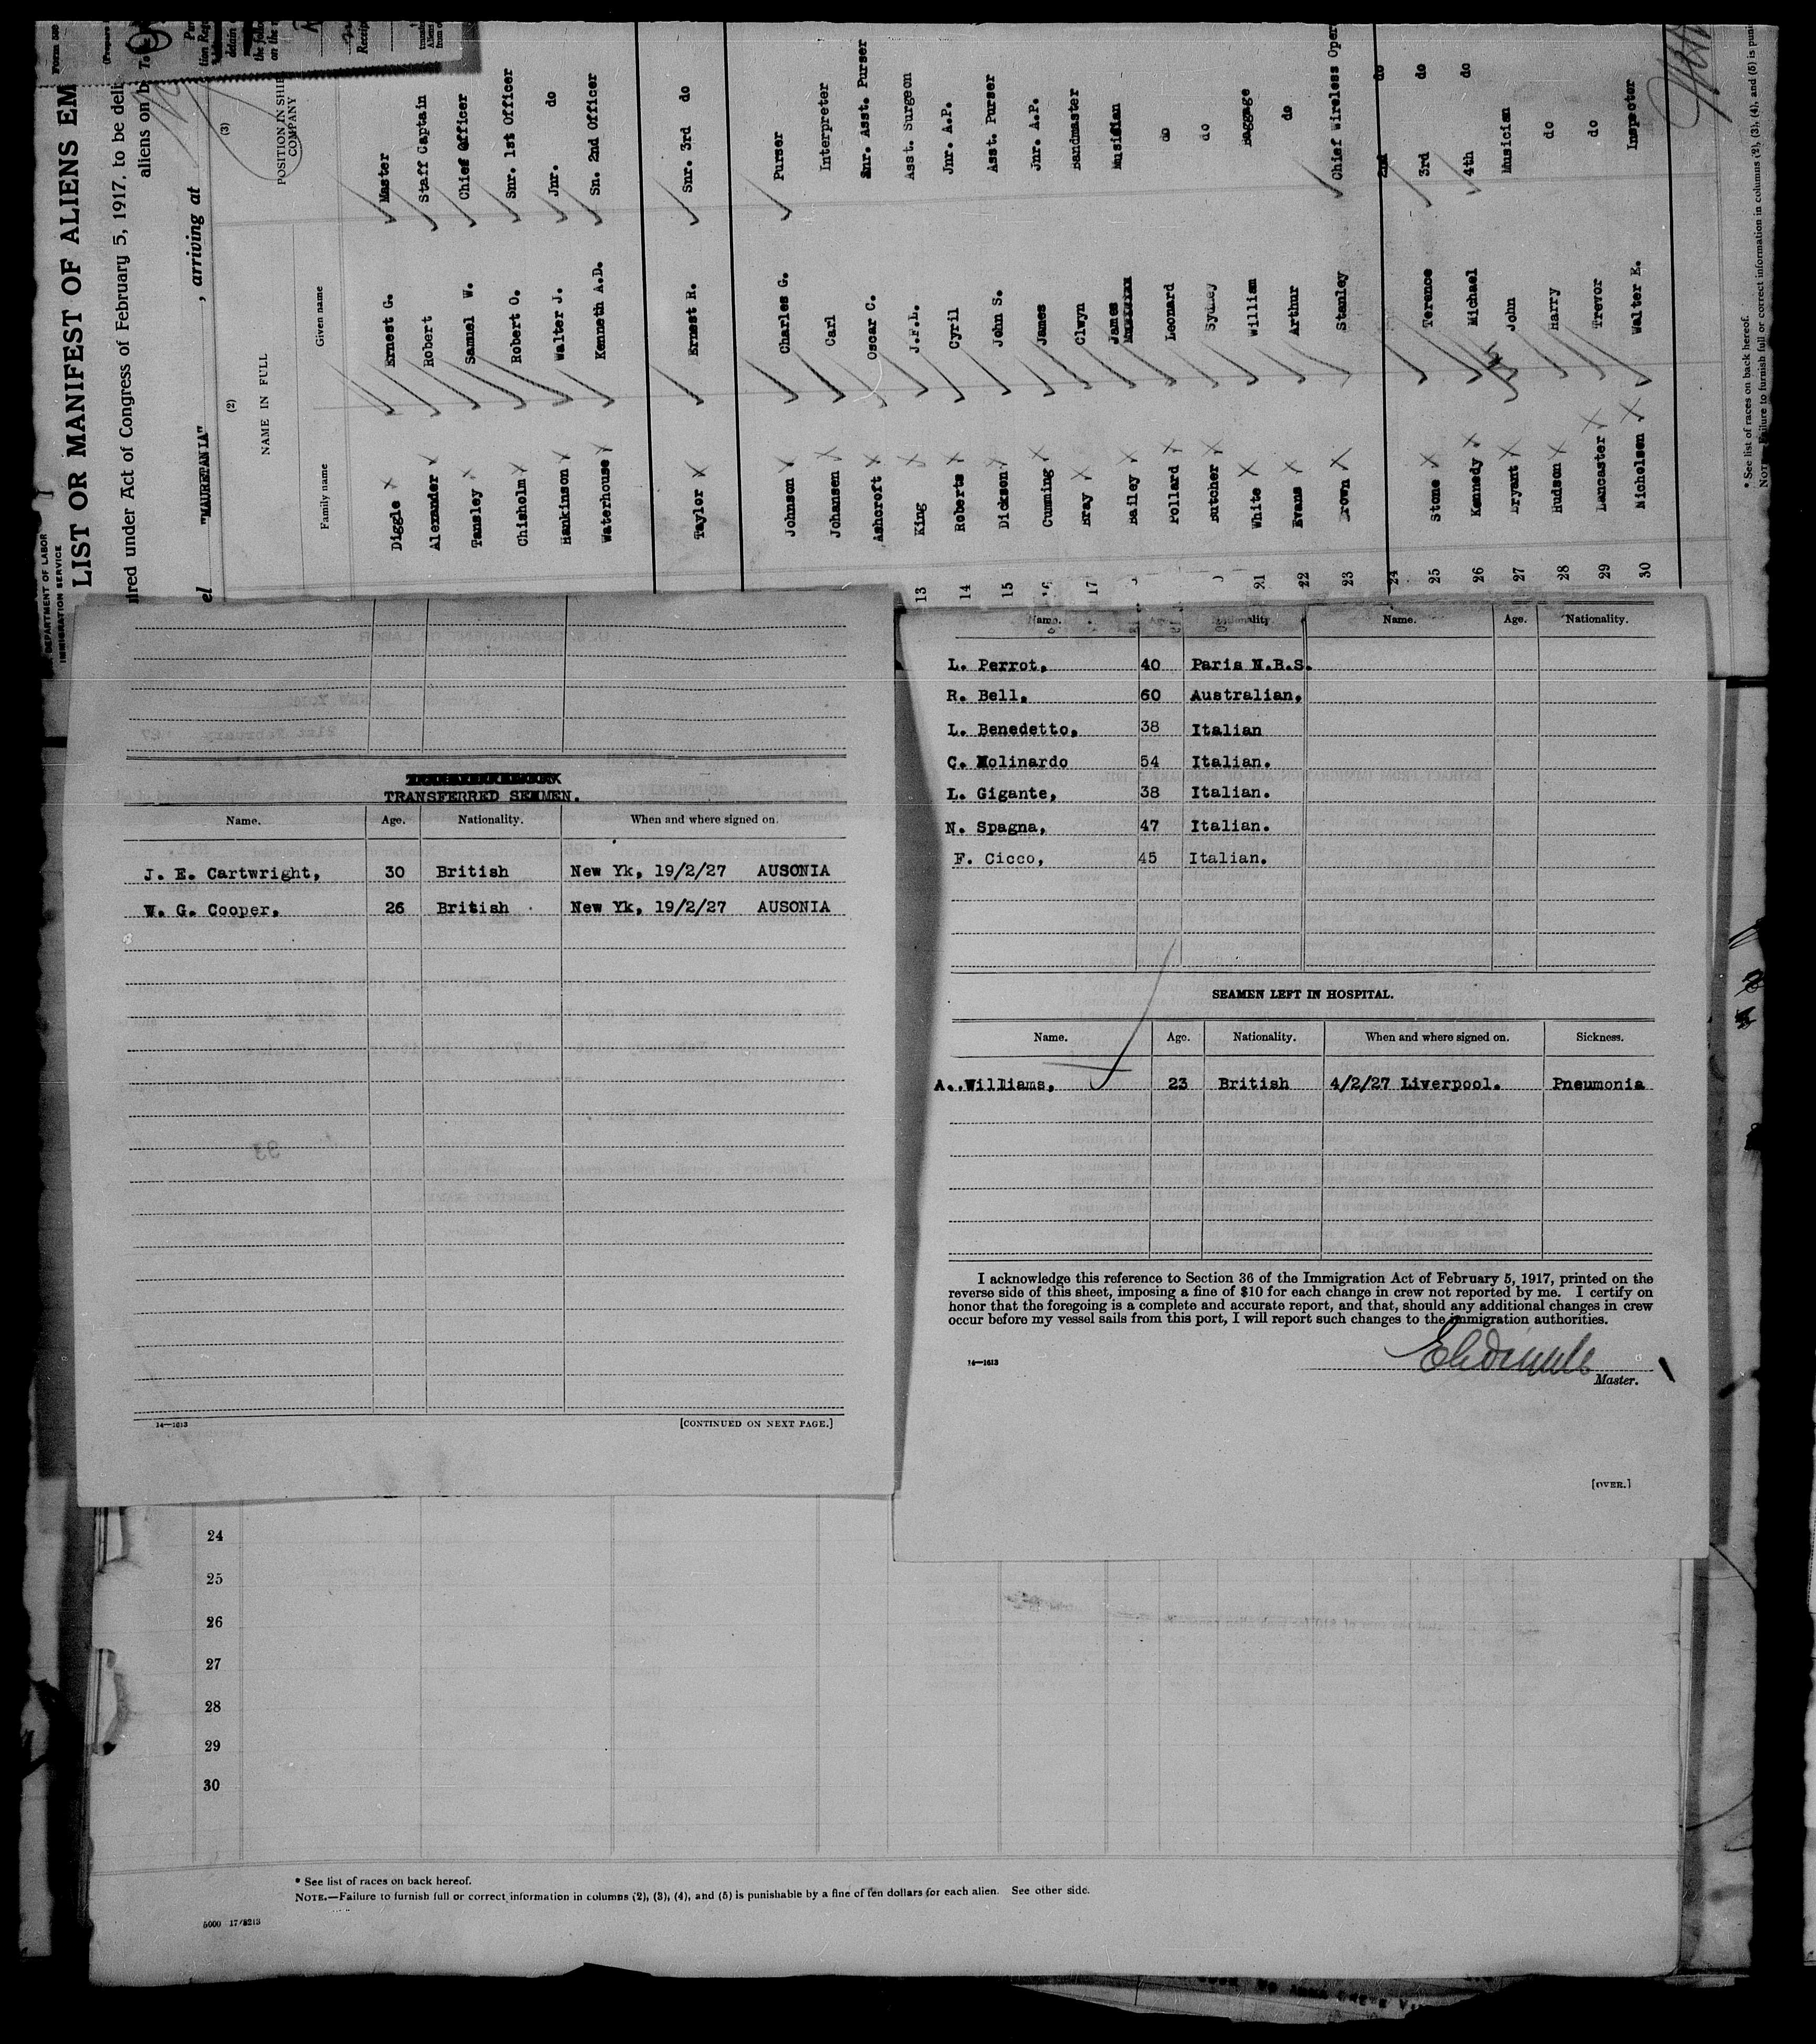 LIST OR MANIFEST OF ALIENS EM
ired under Act of Congress of February 5, 1917, to be deli
aliens on b
DEPARTMENT OF LABOR
IMMIGRATION SERVICE
el "MAURETANIA" , arriving at
(2) (3)
NAME IN FULL POSITION IN SHIP
COMPANY
Family name Given name
Diggle Ernest G. Master
Alexander Robert Staff Captain
Tansley Samuel W. Chief Officer
Chisholm Robert O. Snr. 1st Officer
Hankinson Walter J. Jnr. do
Waterhouse Kenneth A.D. Sn. 2nd Officer
Taylor Ernest R. Snr. 3rd do
Johnson Charles G. Purser
Johansen Carl Interpreter
Ashcroft Oscar C. Snr. Asst. Purser
13 King J.F.L. Asst. Surgeon
14 Roberts Cyril Jnr. A.P.
15 Dickson John S. Asst. Purser
Cumming James Jnr. A.P.
17 Bray Clwyn Bandmaster
Bailey James Musician
Pollard Leonard do
Butcher Sydney do
21 White William Baggage
22 Evans Arthur do
23 Brown Stanley Chief Wireless Oper
24 2nd do
25 Stone Terence 3rd do
26 Kennedy Michael 4th do
27 Bryant John Musician
28 Hudson Harry do
29 Lancaster Trevor do
30 Nicholsen Walter E. Inspector
* See list of races on back hereof.
NOTE.—Failure to furnish full or correct information in columns (2), (3), (4), and (5) is puni
TRANSFERRED SEAMEN.
Name. Age. Nationality. When and where signed on.
J. E. Cartwright, 30 British New Yk, 19/2/27 AUSONIA
W. G. Cooper, 26 British New Yk, 19/2/27 AUSONIA
14—1613 [CONTINUED ON NEXT PAGE.]
Name. Age. Nationality Name. Age. Nationality.
L. Perrot, 40 Paris N.B.S.
R. Bell, 60 Australian.
L. Benedetto, 38 Italian
C. Molinardo 54 Italian.
L. Gigante, 38 Italian.
N. Spagna, 47 Italian.
F. Cicco, 45 Italian.
SEAMEN LEFT IN HOSPITAL.
Name. Age. Nationality. When and where signed on. Sickness.
A. Williams, 23 British 4/2/27 Liverpool. Pneumonia
I acknowledge this reference to Section 36 of the Immigration Act of February 5, 1917, printed on the
reverse side of this sheet, imposing a fine of $10 for each change in crew not reported by me. I certify on
honor that the foregoing is a complete and accurate report, and that, should any additional changes in crew
occur before my vessel sails from this port, I will report such changes to the immigration authorities.
14—1613
Master.
[OVER.]
24
25
26
27
28
29
30
* See list of races on back hereof.
NOTE.—Failure to furnish full or correct information in columns (2), (3), (4), and (5) is punishable by a fine of ten dollars for each alien. See other side.
5000 17/8213